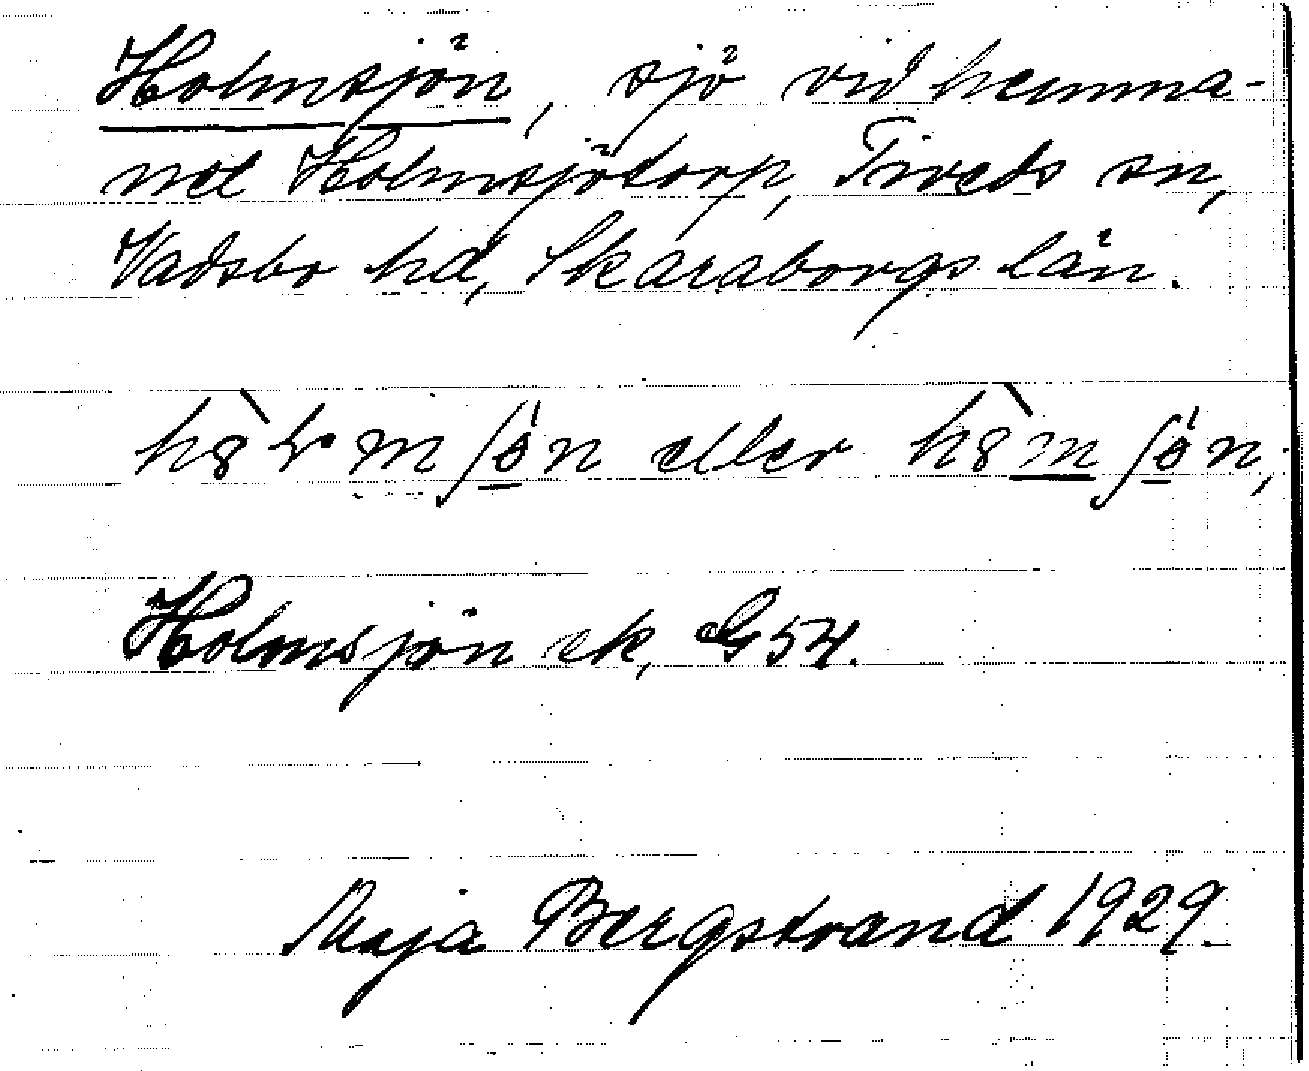 Holmsjön, sjö vid hemma-
net Holmsjötorp, Tiveds sn,
Vadsbo hd, Skaraborgs län.
eller
Holmsjön ek, G 54.
Maja Bergstrand 1929.